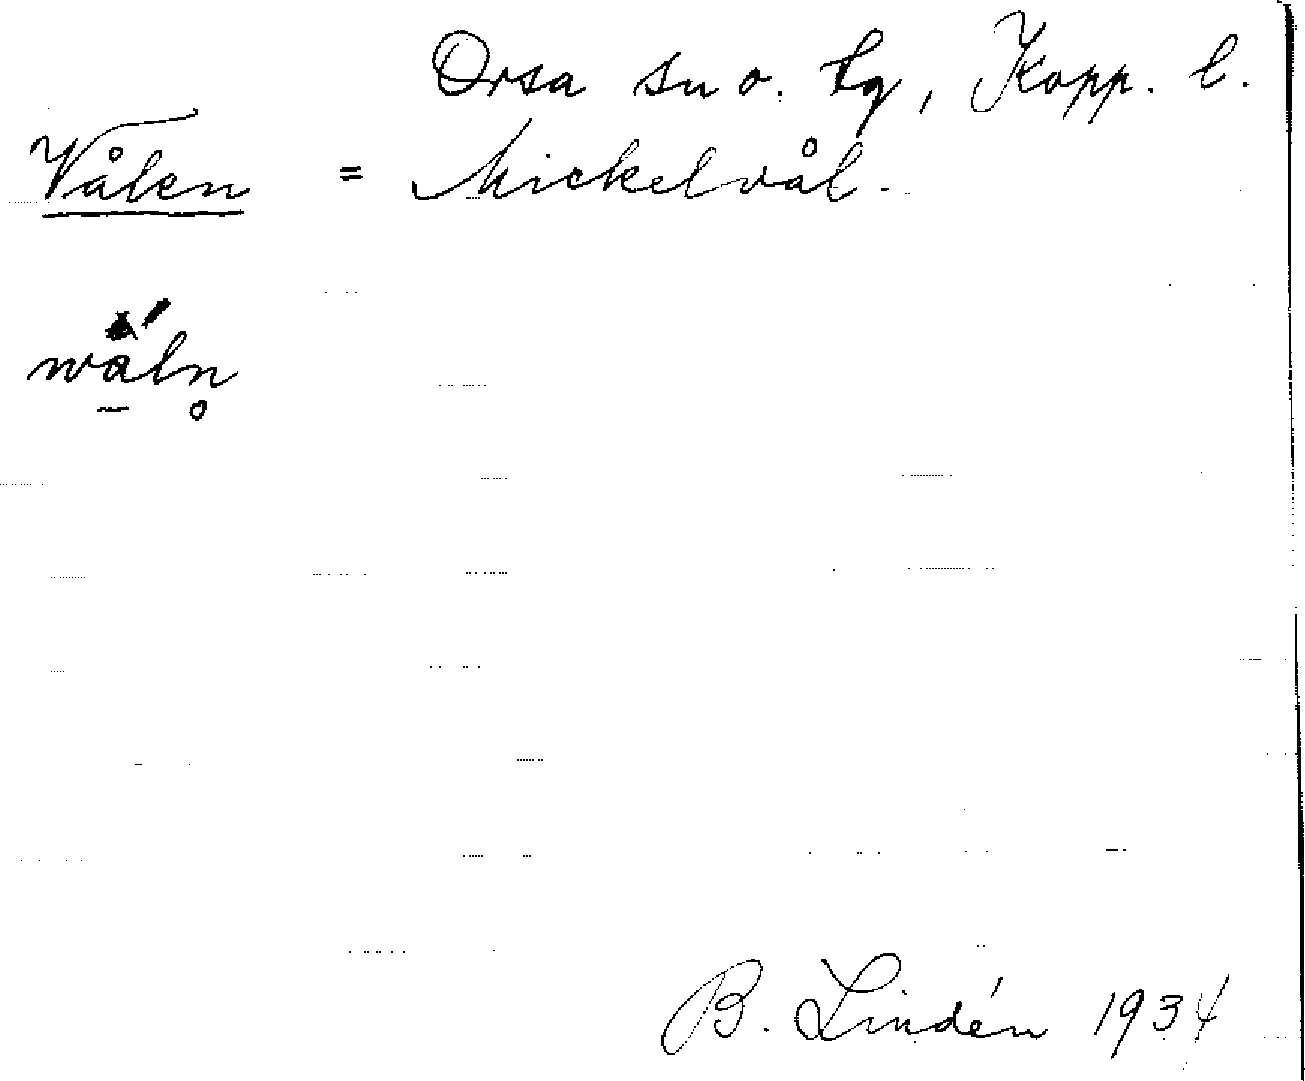 Orsa sn o. tg, Kopp. l.
Vålen = Mickelvål.
wåln
B. Lindén 1934